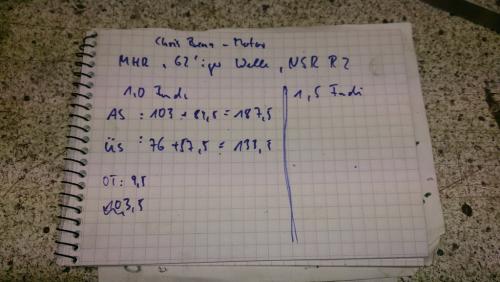 Chris - Motor
MHR, 62'iger Welle, NSR RZ
1,0 Fudi
AS : 103 + 84,5 = 187,5
ÜS : 76 + 57,5 = 133,5
OT : 9,5
103,5
1,5 Fudi